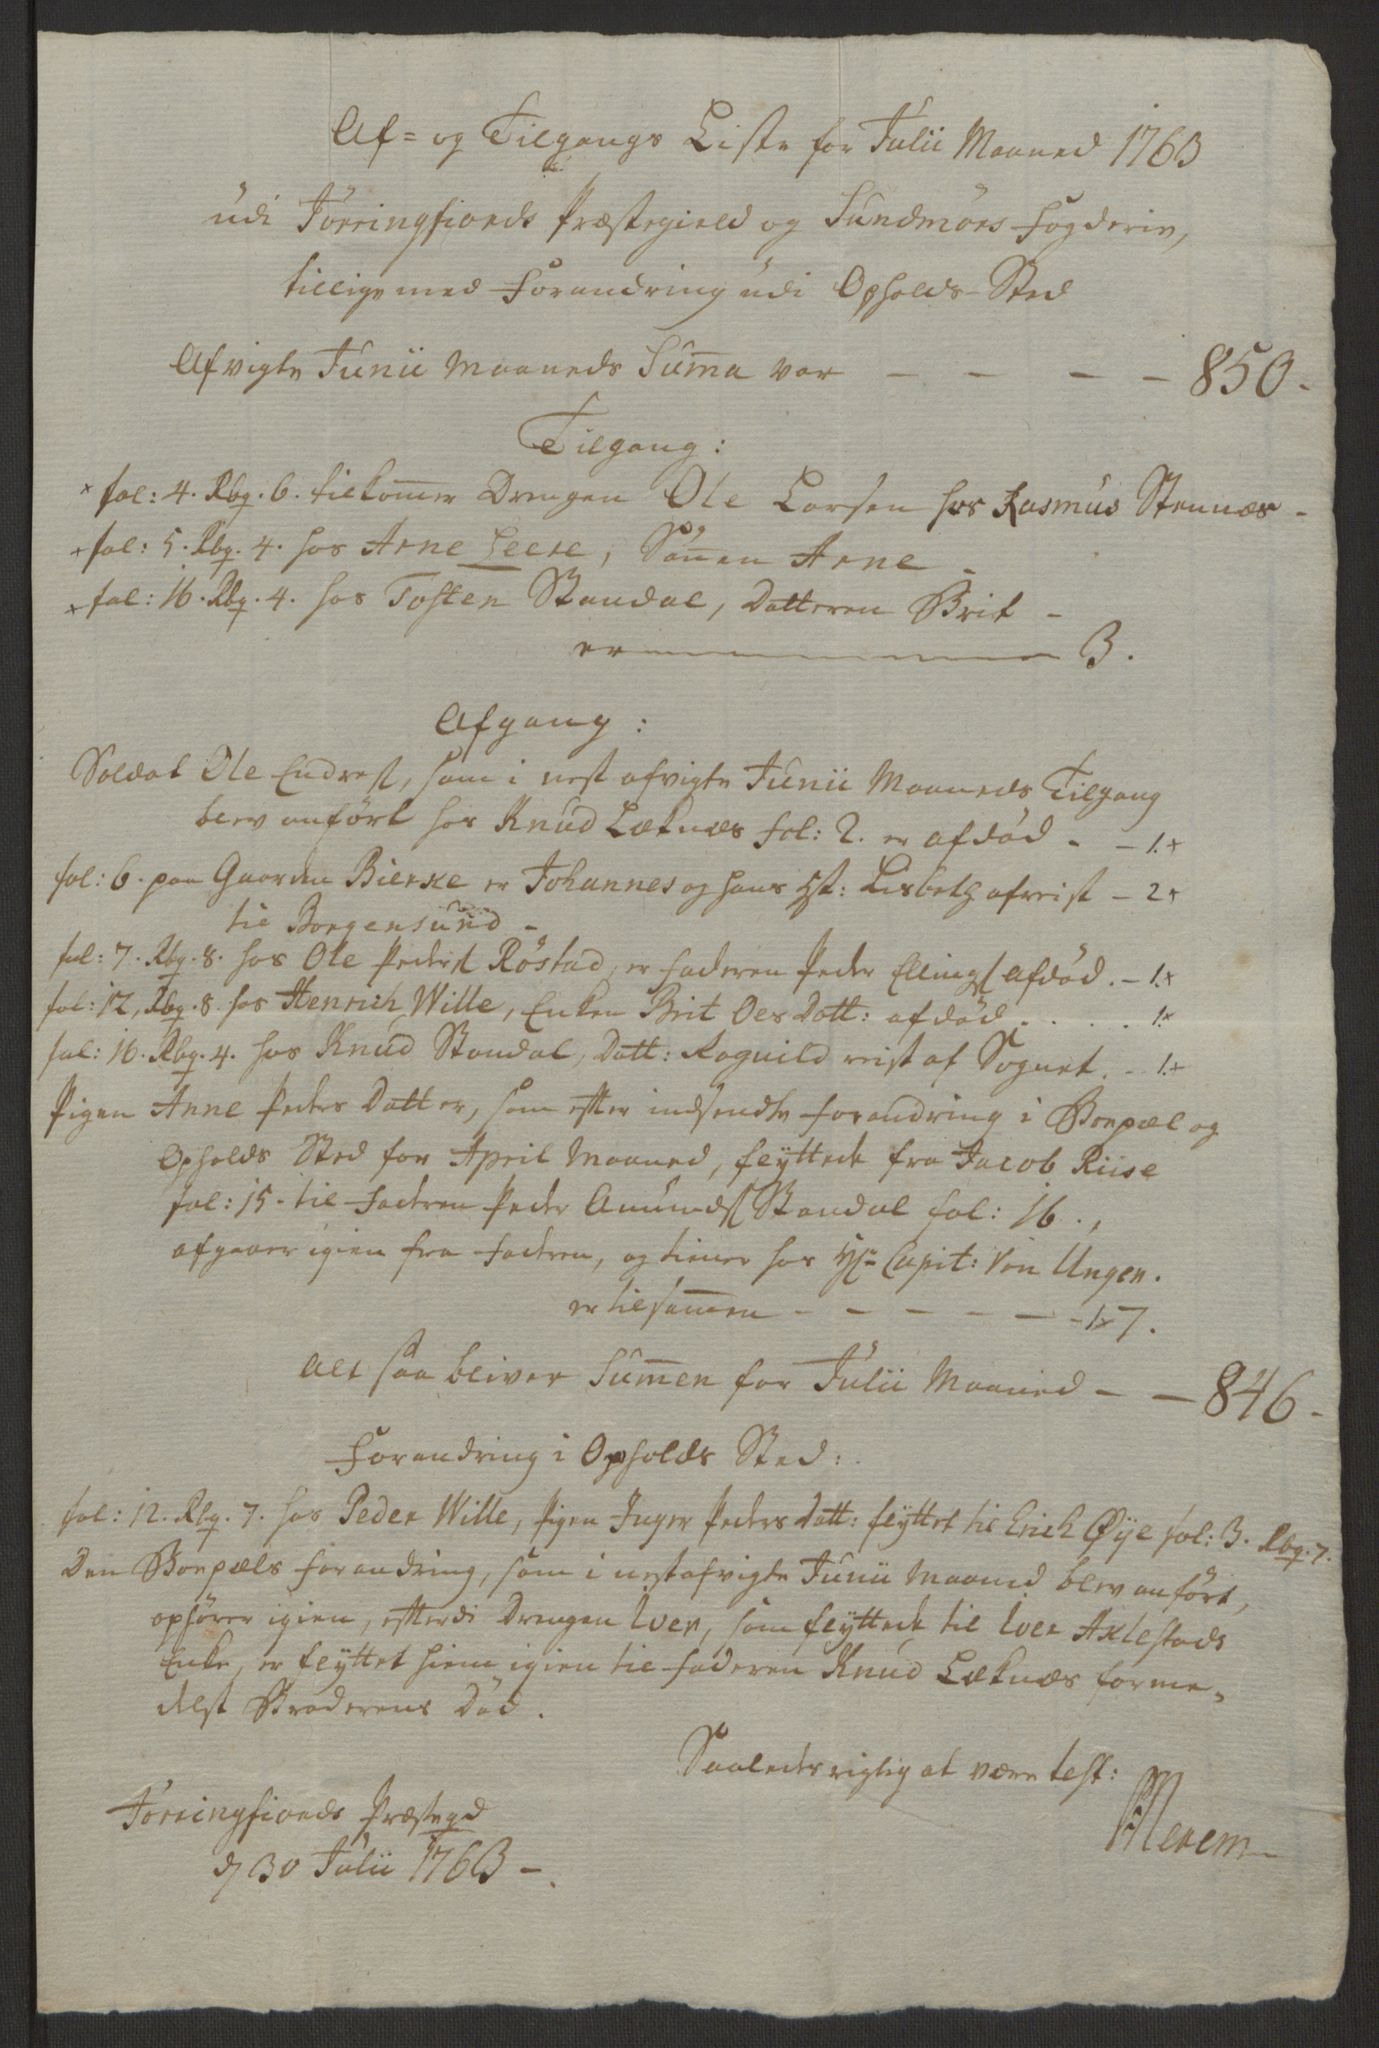 Af= og Tilgangs Liste for Julii Maaned 1763
udi Jörringfiords Præstegield og Sundmörs Fogderie,
tillige med Forandring udi Opholds-Sted
Afvigte Junii Maaneds Suma var - - - - 850.
Tilgang:
x fol: 4. Rbq. 6. tilkomer Drengen Ole Larsen hos Rasmus Stennæs -
x fol: 5. Rbq. 4. hos Arne Leere, Sönen Arne -
x fol: 16. Rbq. 4. hos Tosten Standal, Datteren Brit -
er 3.
Afgang:
Soldat Ole Endres, som i nest afvigte Junii Maaneds Tilgang
blev anfört hos Knud Leknæs fol: 2. er afdöd - - 1.x
fol: 6. paa Gaarden Bierke er Johannes og hans H: Lisbeth afreist - 2x
til Borgensund -
fol: 7. Rbq. 8. hos Ole Peders Röstad, er faderen Peder Ellings afdöd. - 1.x
fol: 12, Rbq. 8 hos Henrich Wille, Enken Brit Oes Datt: afdöd . . . . . 1.x
fol: 16. Rbq. 4. hos Knud Standal, Datt: Ragnild reist af Sognet. - 1.x
Pigen Anne Peders Datter, som efter indsendte forandring i Boepæl og
Opholds Sted for April Maaned, fløttede fra Jacob Riise
fol: 15. til Faderen Peder Amunds Standal fol: 16.,
afgaaer igien fra Faderen, og tiener hos Hr Capit: Von Ungen.
er tilsamen - - - - - - 1x 7.
Alt saa bliver Sumen for Julii Maaned - - 846.
Forandring i Opholds Sted:
fol: 12. Rbq. 7. hos Peder Wille, Pigen Inger Peders Datt: fløttet til Erich Øye fol: 3. Rbq. 7.
Den Boepæls forandring, som i nestafvigte Junii Maaned blev anfört,
ophörer igien, efterdi Drengen Iver, som fløttede til Iver Axlestads
Enke, er fløttet hiem igien til faderen Knud Leknæs forme„
delst Broderens Död.
Saaledes rigtig at være test:
Jörringfiords Præstegd
d 30 Julii 1763 -.